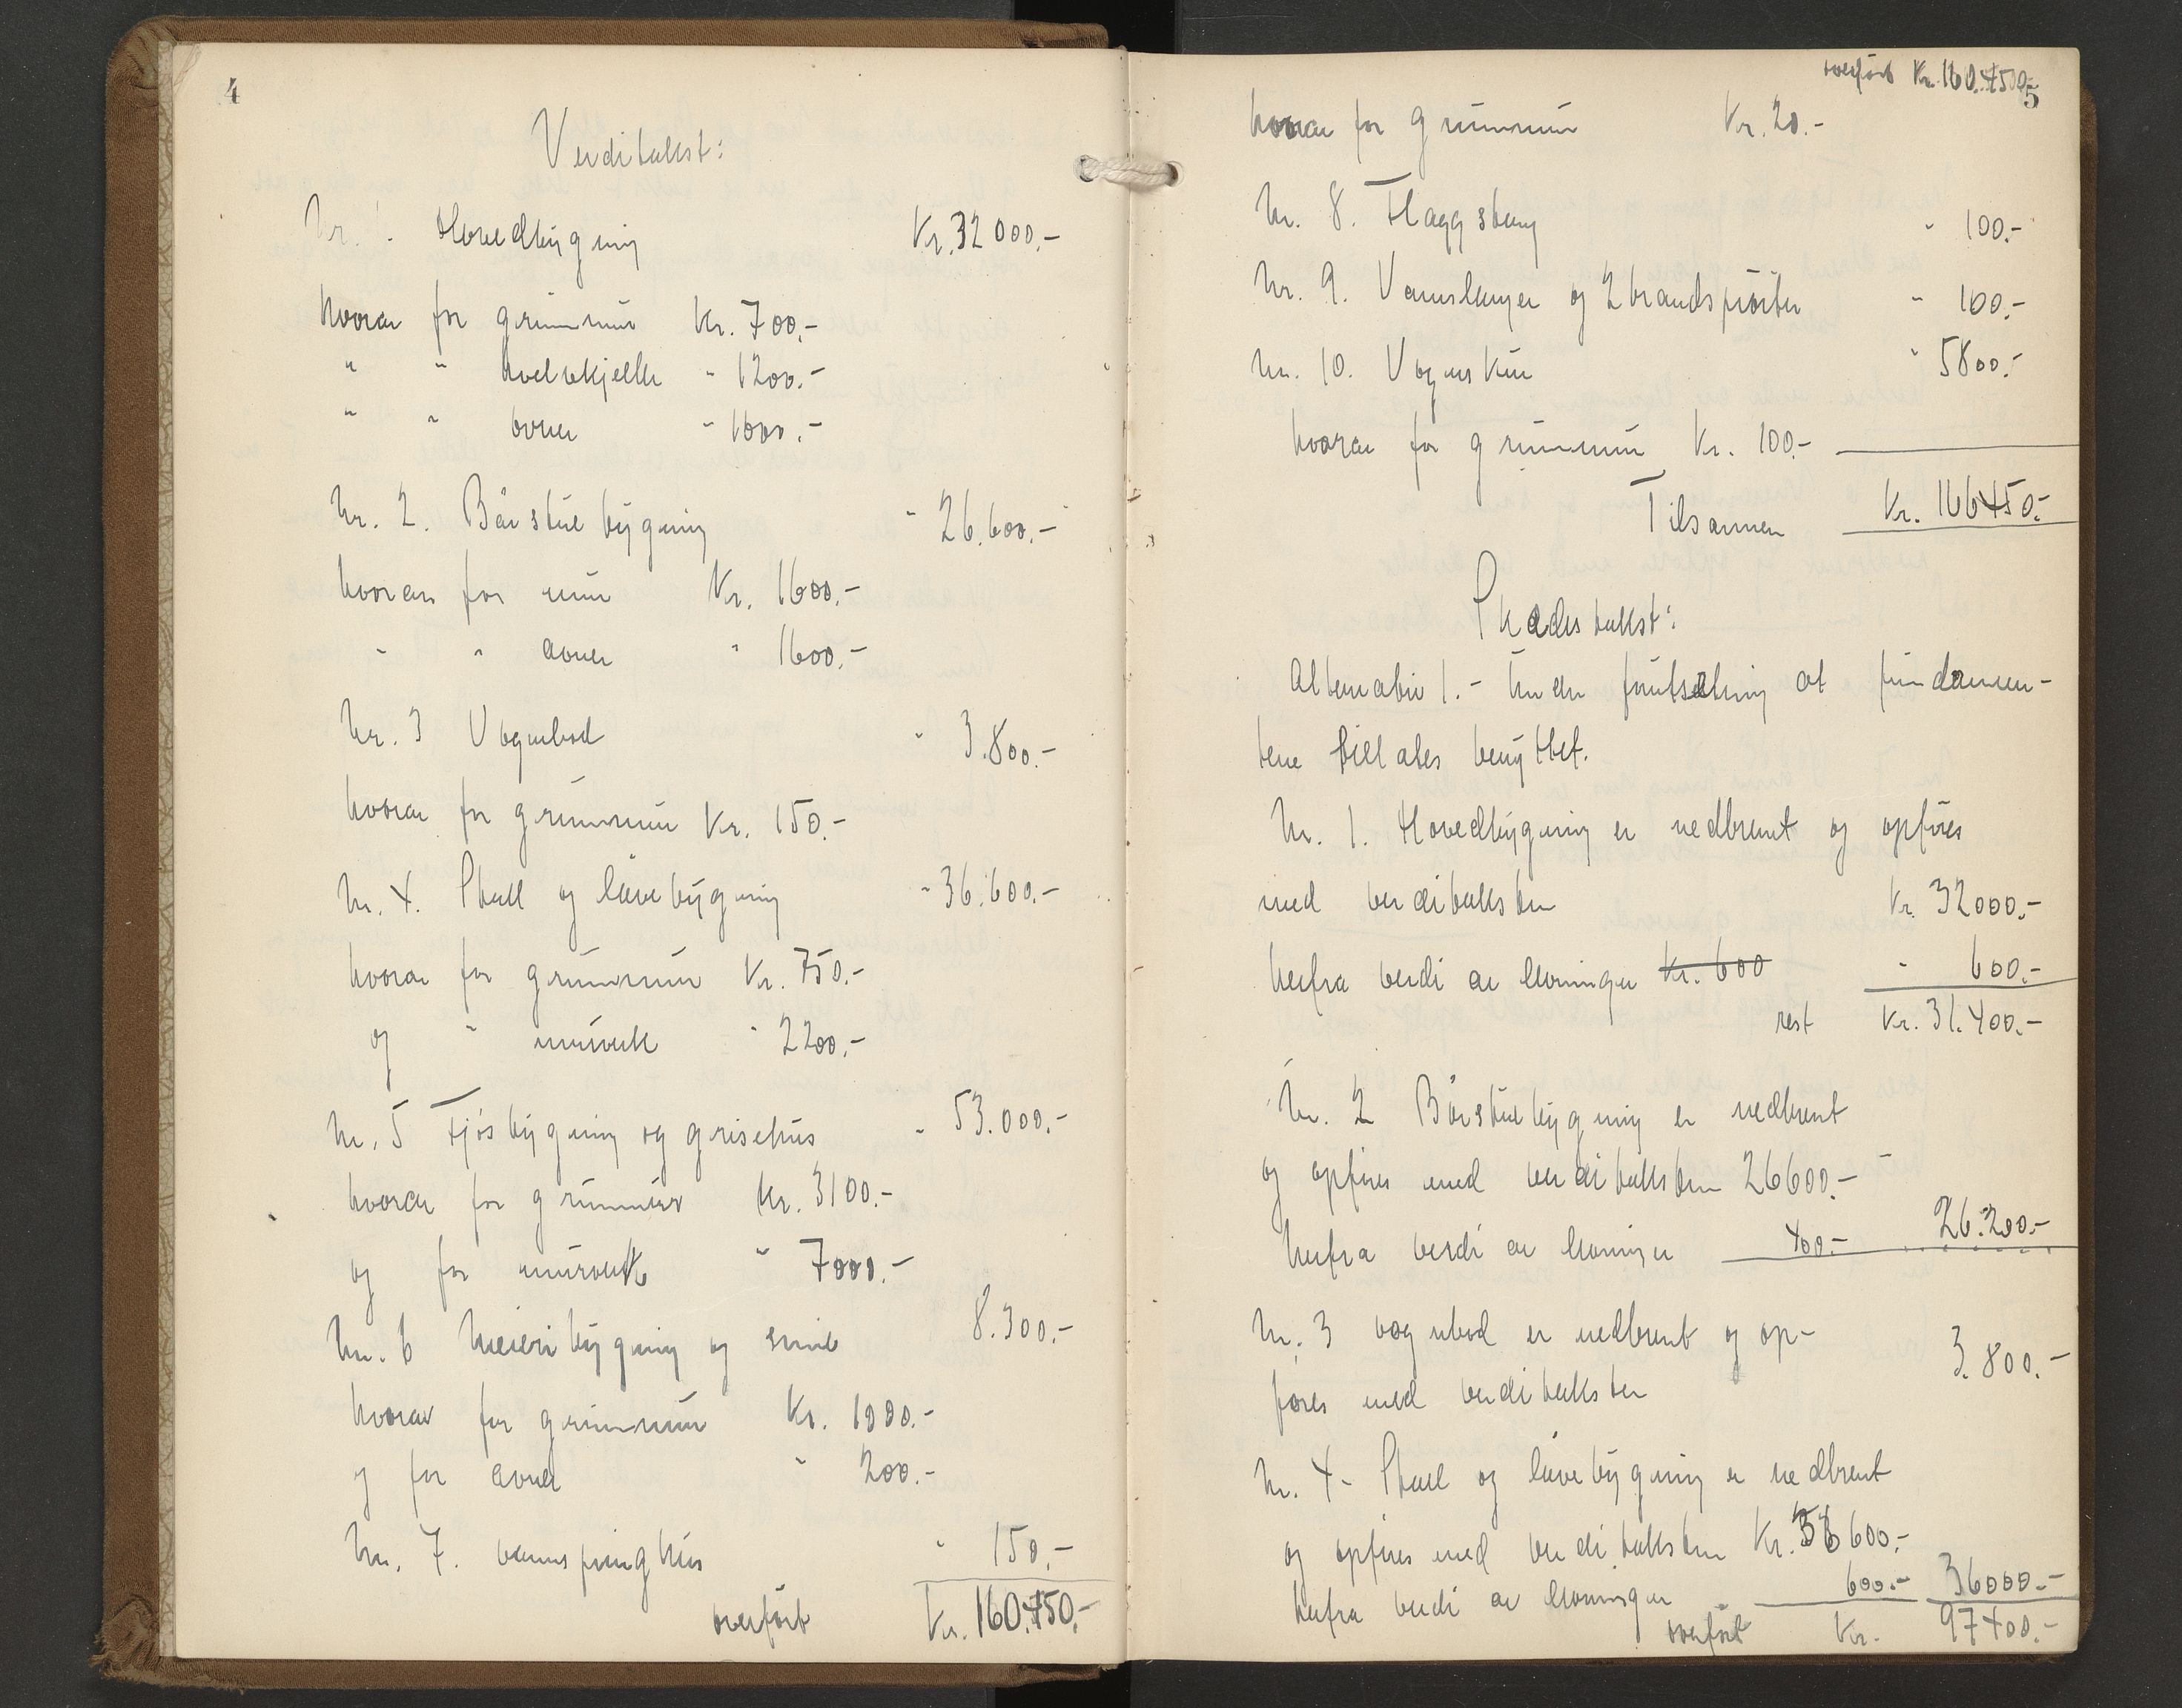 4
Verditakst:
Nr. 1. Hovedbygning Kr. 32000.-
hvorav for grunnmur Kr. 700.-
" " hvelvkjeller " 1200.-
" " ovner " 1600.-
Nr. 2. Bårstuebygning " 26.600.-
hvorav for mur Kr. 1600.-
" " ovner " 1600.-
Nr. 3 Vognbod " 3.800.-
hvorav for grunnmur Kr. 150.-
Nr. 4. Stall og låvebygning " 36.600.-
hvorav for grunnmur Kr. 750.-
og " murverk " 2200.-
Nr. 5 Fjøsbygning og grisehus " 53.000.-
hvorav for grunnmur Kr. 3100.-
og for murverk " 7000.-
Nr. 6 Meieribygning og smie 8.300.-
hvorav for grunnmur Kr. 1000.-
og for ovner " 200.-
Nr. 7. vannpunghus " 150.-
overført Kr. 160.450.-
overført Kr. 160.450.-
5
hvorav for grunnmur Kr. 20.-
Nr. 8. Flaggstang " 100.-
Nr. 9. Vannslanger og 2 brandsprøiter " 100.-
Nr. 10. Vognskur " 5800.-
hvorav for grunnmur Kr. 100.-
Tilsammen Kr. 166450.-
Skadestakst:
Alternativ 1.- Under forutsetning at fundamen-
tene tillates benyttet.
Nr. 1. Hovedbygning er nedbrent og opføres
med verditaksten Kr. 32000.-
herfra verdi av levninger Kr. 600 " 600.-
rest Kr. 31.400.-
Nr. 2 Bårstuebygning er nedbrent
og opføres med verditaksten 26600.-
herfra verdi av levninger 400.- 26.200.-
Nr. 3 vognbod er nedbrent og op-
føres med verditaksten 3.800.-
Nr. 4- Stall og låvebygning er nedbrent
og opføres med verditaksten Kr. 36600.-
herfra verdi av levninger 600.- 36000.-
overført Kr. 97400.-